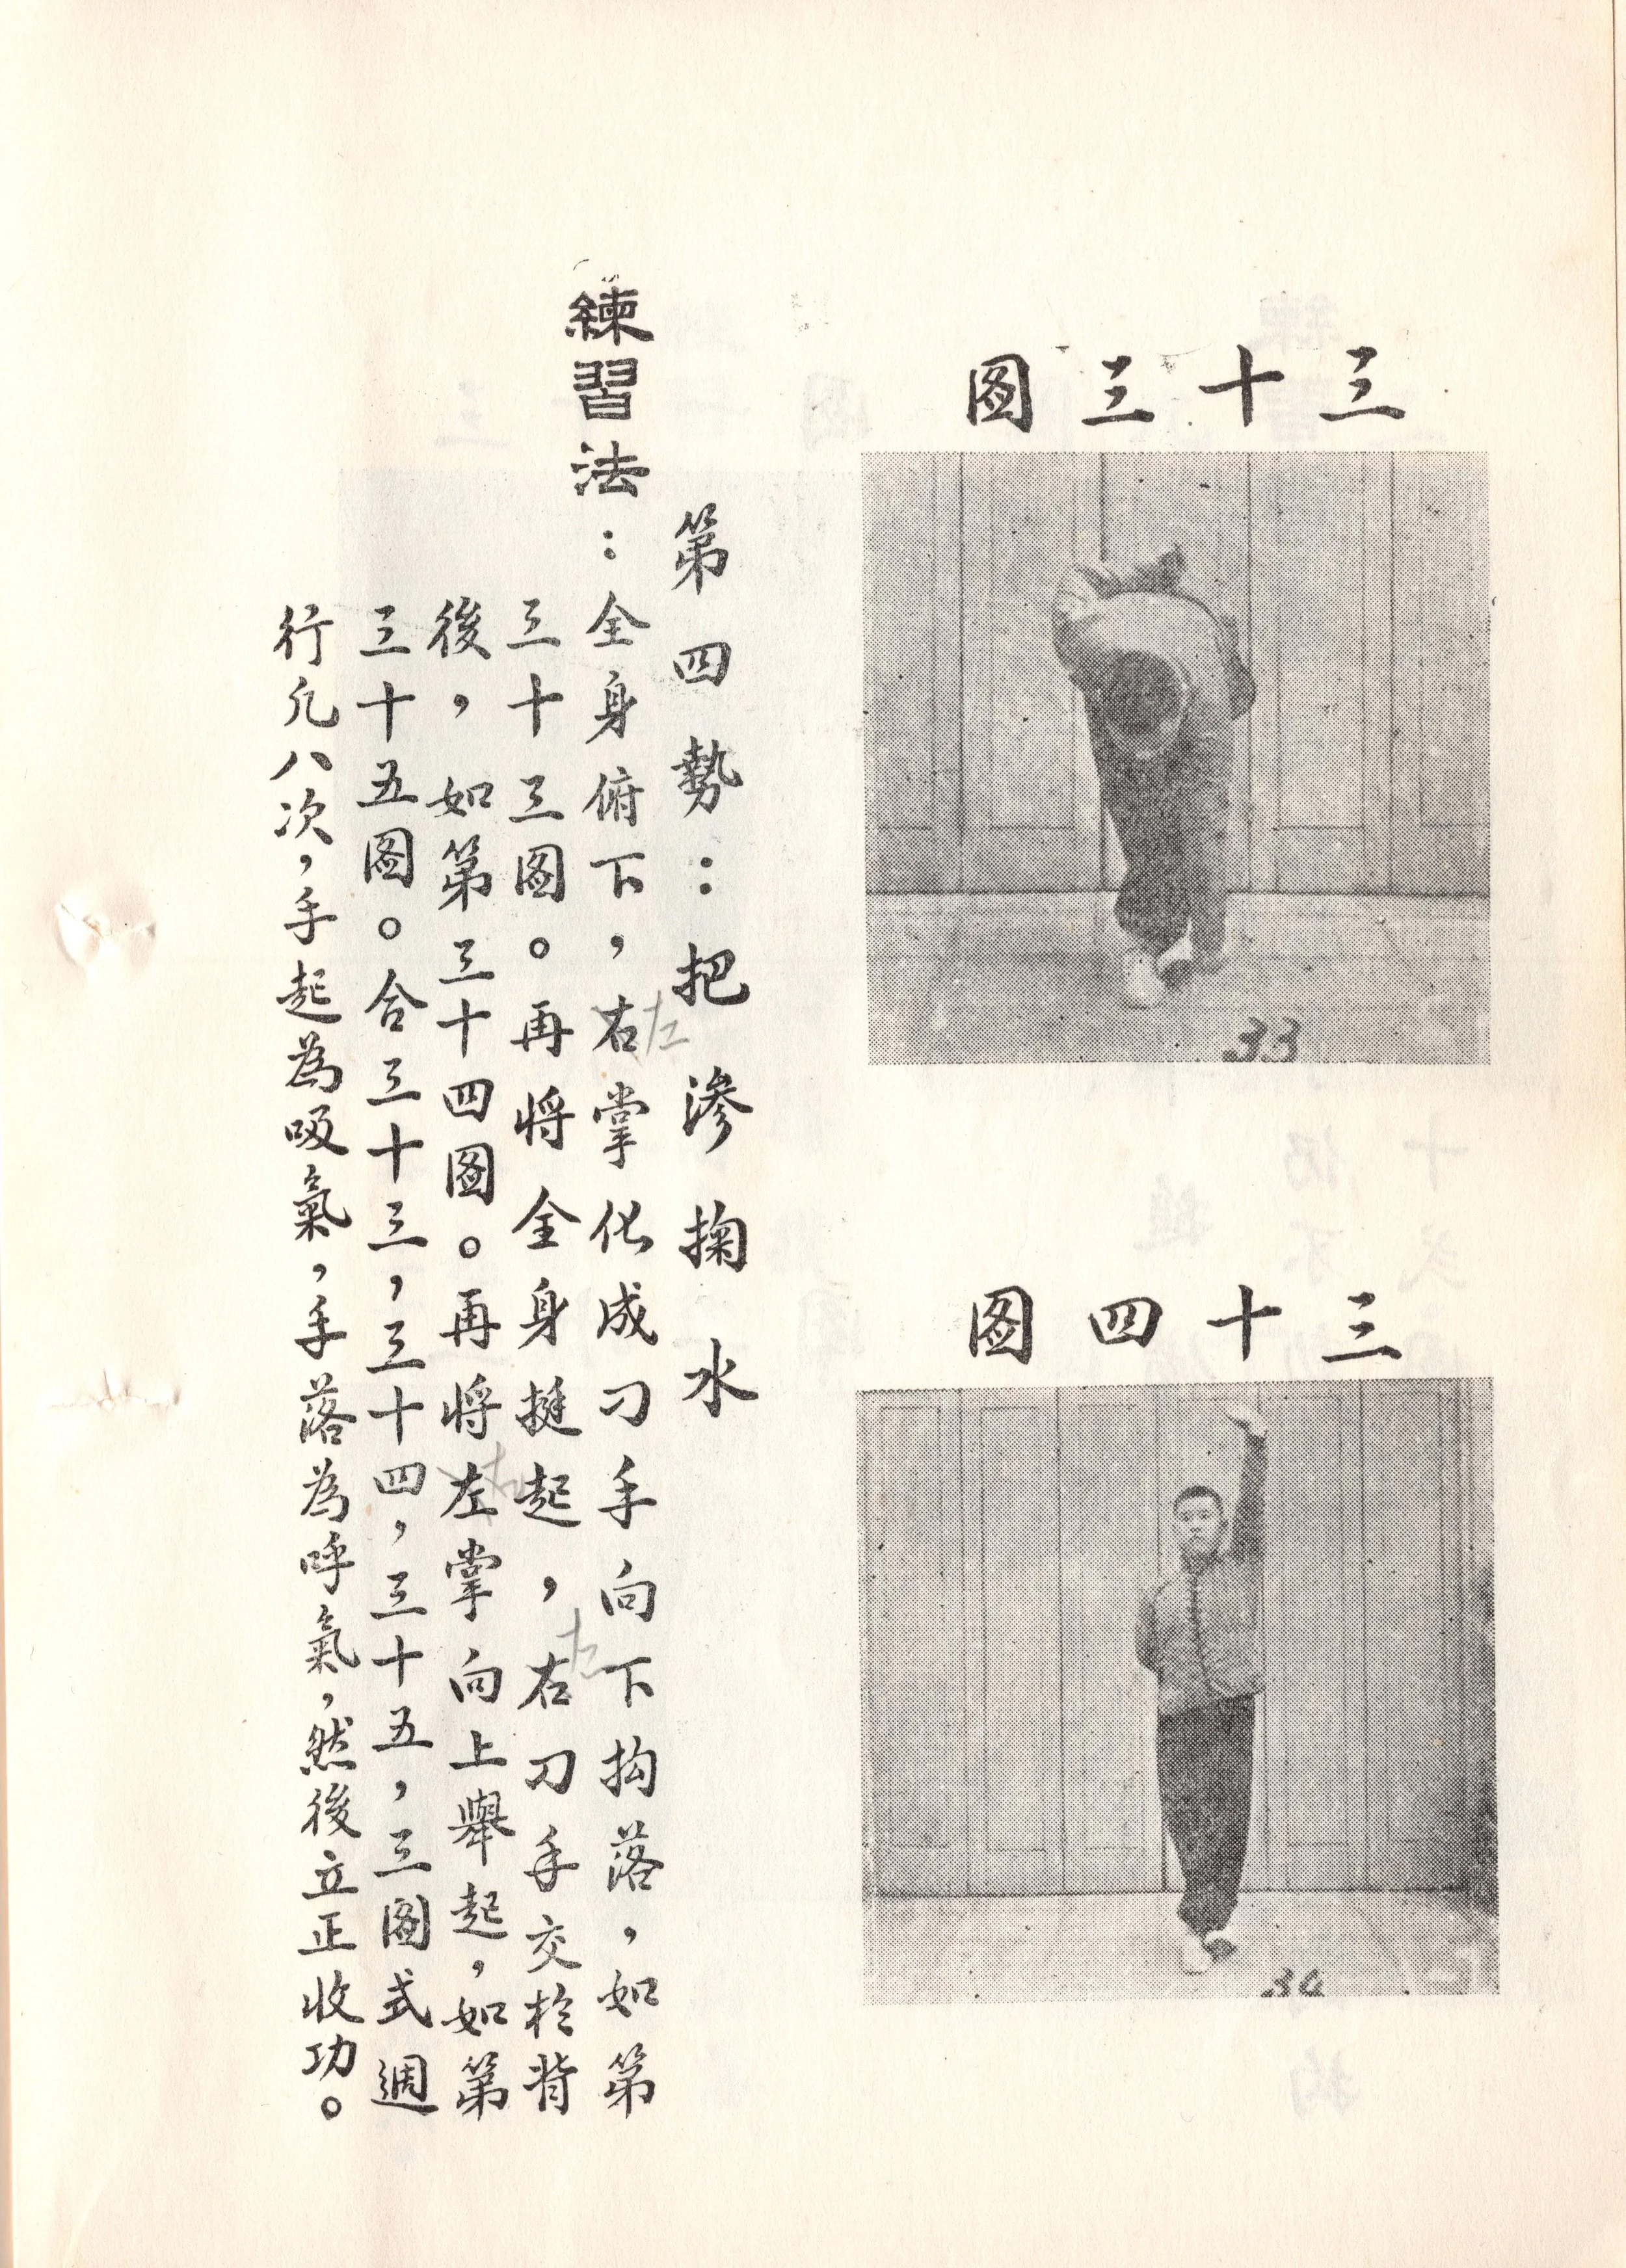 三十三图
33
三十四图
34
第四勢：把滲掬水
練習法：全身俯下，右掌化成刁手向下抅落，如第
左
三十三图。再將全身挺起，右刁手交於背
左
後，如第三十四图。再將左掌向上舉起，如第
右
三十五图。合三十三，三十四，三十五，三图式週
行凢八次，手起為吸氣，手落為呼氣，然後立正收功。